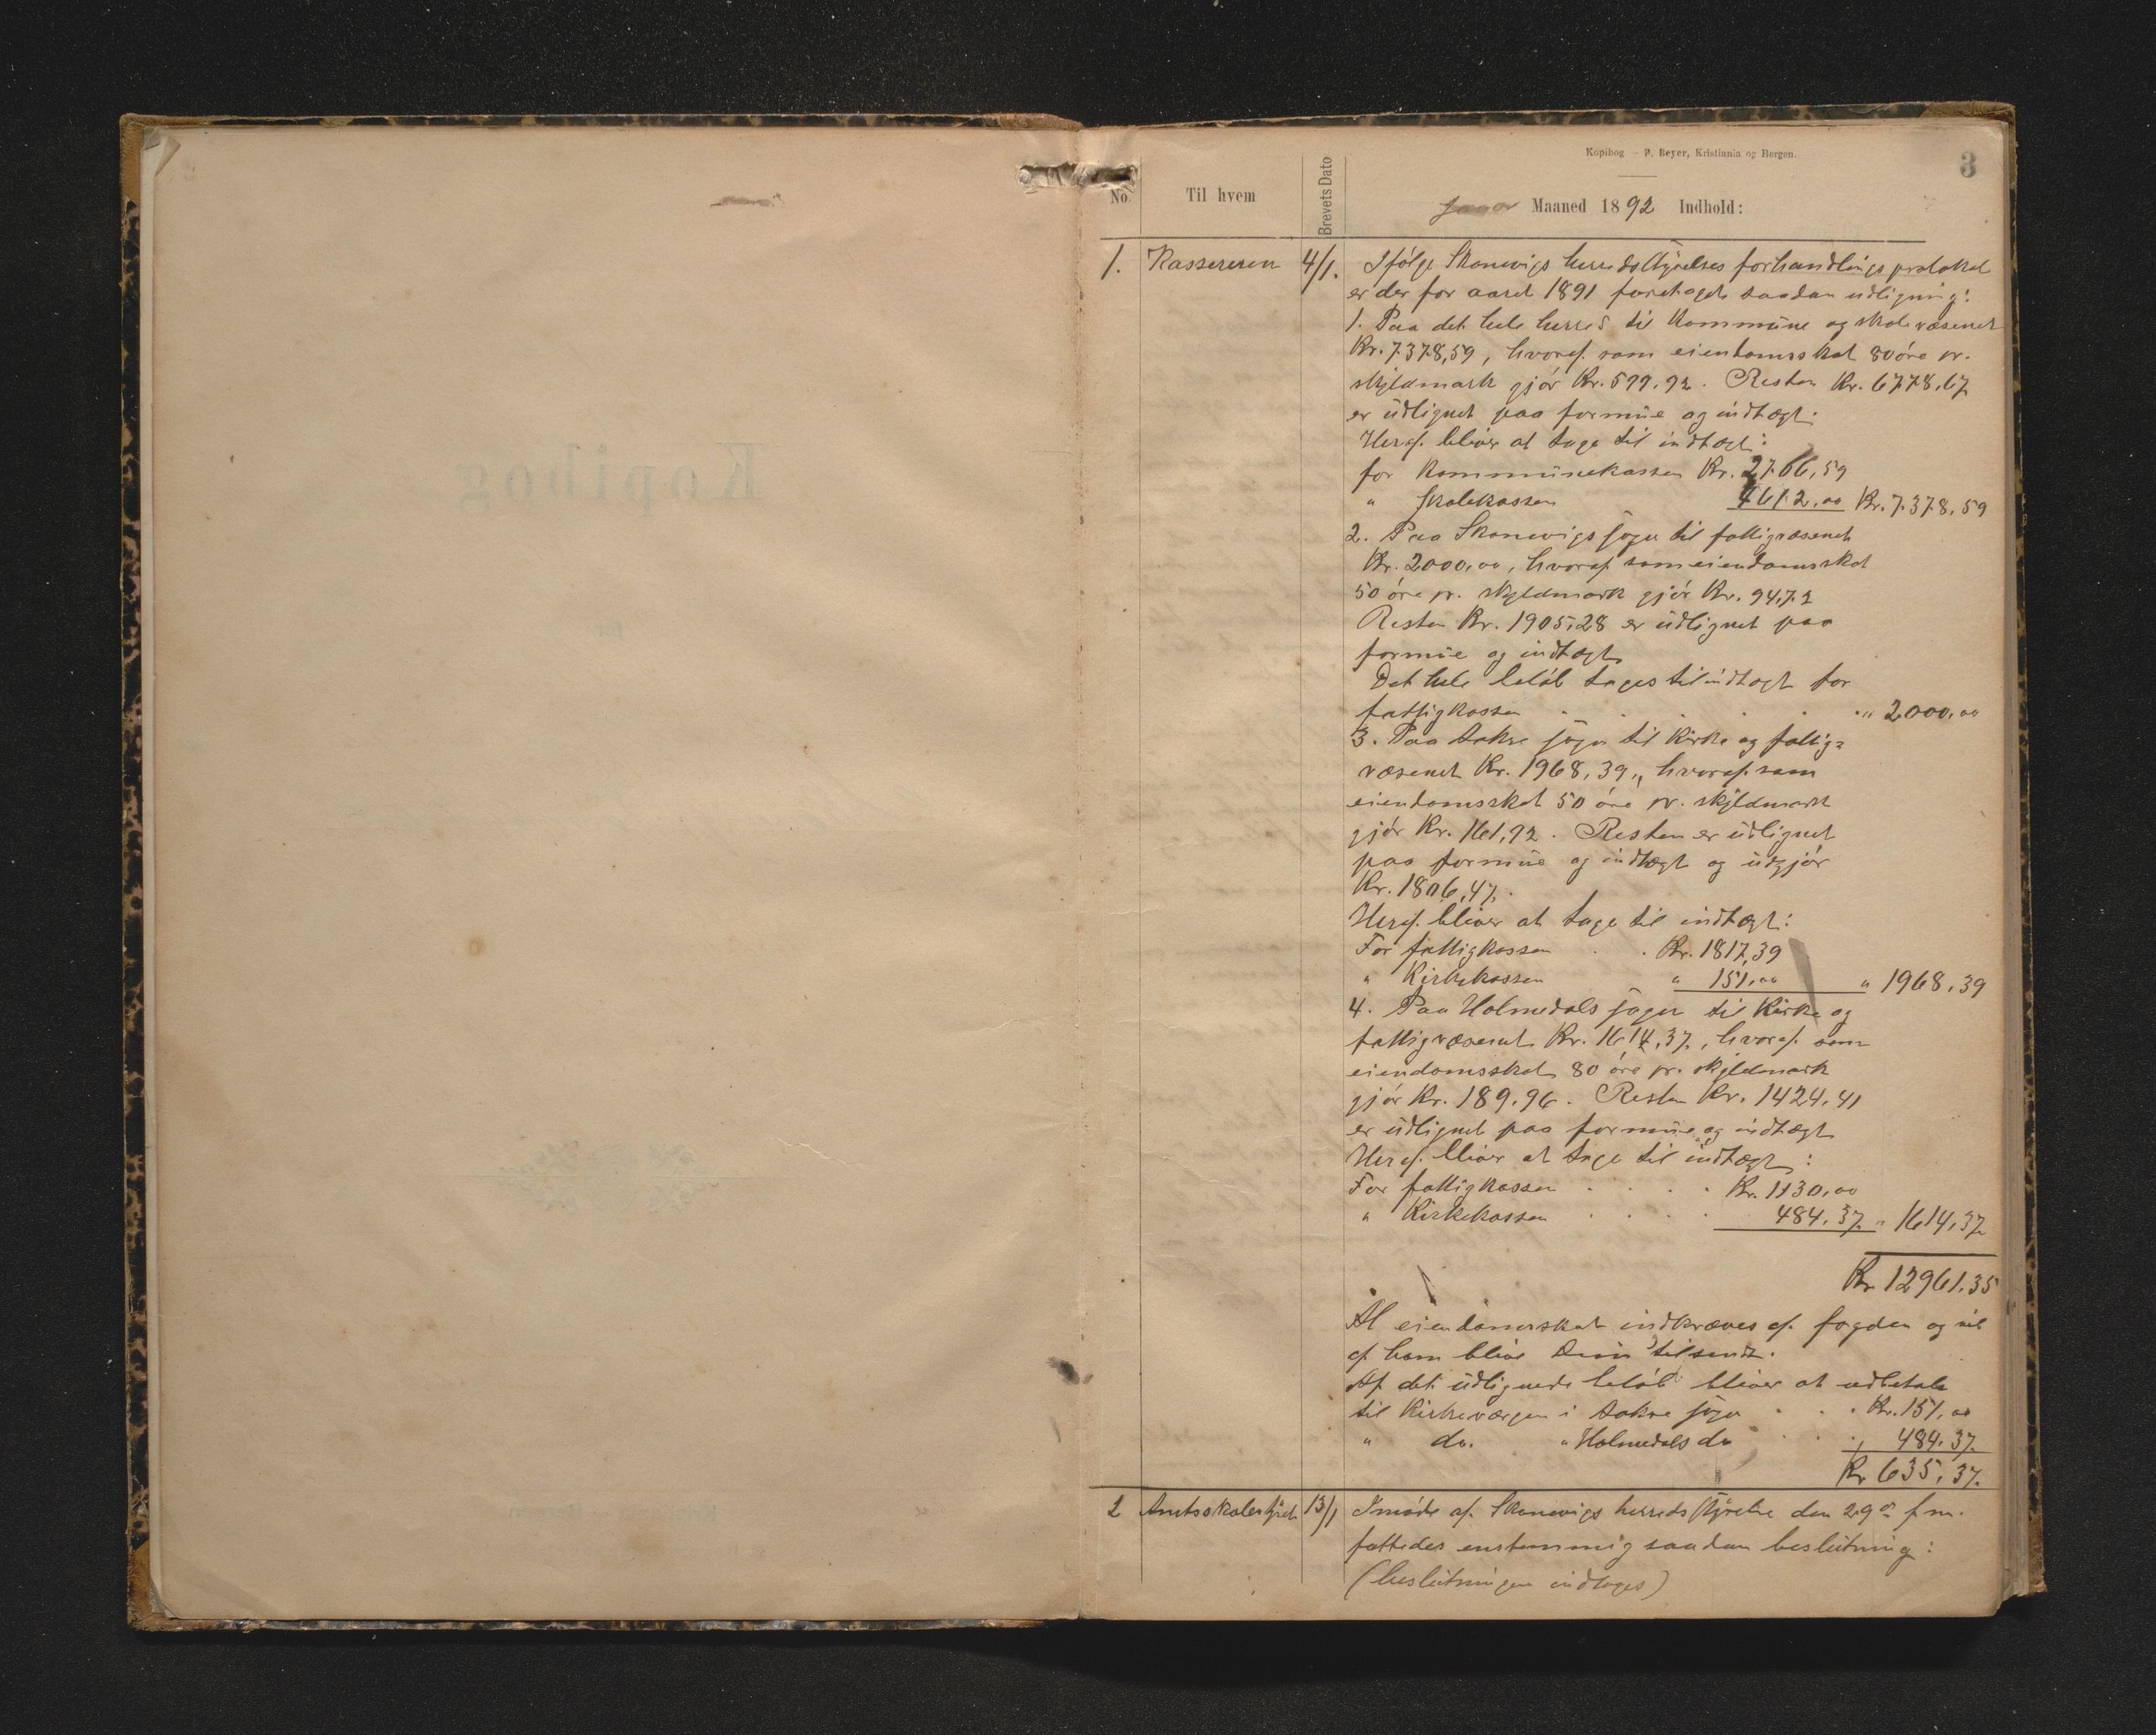 Kopibog — F. Beyer, Kristiania og Bergen.
3
No. Til hvem Brevets Dato Januar Maaned 1892 Indhold:
1. Kassereren 4/1. Ifølge Skonevigs herredsstyrelses forhandlingsprotokol
er der for aaret 1891 foretaget saadan udligning:
1. Paa det hele herred til Kommune og skolevæsenet
Kr. 7378,59, hvoraf som eiendomsskat 80 øre pr.
skyldmark gjør Kr. 599.92. Resten Kr. 6778,67
er udlignet paa formue og indtægt.
Heraf bliver at tage til indtægt:
for Kommunekassen Kr. 2766,59
" Skolekassen 4612,00 Kr. 7378,59
2. Paa Skonevigs sogn til fattigvæsenet
Kr. 2000,00, hvoraf som eiendomsskat
50 øre pr. skyldmark gjør Kr. 94,72
Resten Kr. 1905,28 er udlignet paa
formue og indtægt
Det hele beløb tages til indtægt for
fattigkassen . . . . " 2000,00
3. Paa Aakre sogn til Kirke og fattig=
væsenet Kr. 1968,39, hvoraf som
eiendomsskat 50 øre pr. skyldmark
gjør Kr. 161,92. Resten er udlignet
paa formue og indtægt og udgjør
Kr. 1806,47.
Heraf bliver at tage til indtægt:
For fattigkassen . . Kr. 1817,39
" Kirkekassen " 151,00 " 1968,39
4. Paa Holmedals sogn til Kirke og
fattigvæsenet Kr. 1614,37, hvoraf som
eiendomsskat 80 øre pr. skyldmark
gjør Kr. 189,96. Resten Kr. 1424.41
er udlignet paa formue og indtægt
Heraf bliver at tage til indtægt:
For fattigkassen . . . . Kr. 1130,00
" Kirkekassen . . . . 484,37 " 1614,37
Kr. 12961.35
Al eiendomsskat indkræves af fogden og vil
af ham blive Dem tilsendt.
Af det udlignede beløb bliver at udbetale
til Kirkeværgen i Aakre sogn . . . Kr. 151,00
" do. " Holmedals do . . . " 484.37
Kr 635,37.
2 Amtsskolestyret 13/1 I møde af Skonevigs herredsstyrelse den 29de f.m.
fattedes enstemmig saadan beslutning:
(beslutningen indtages)